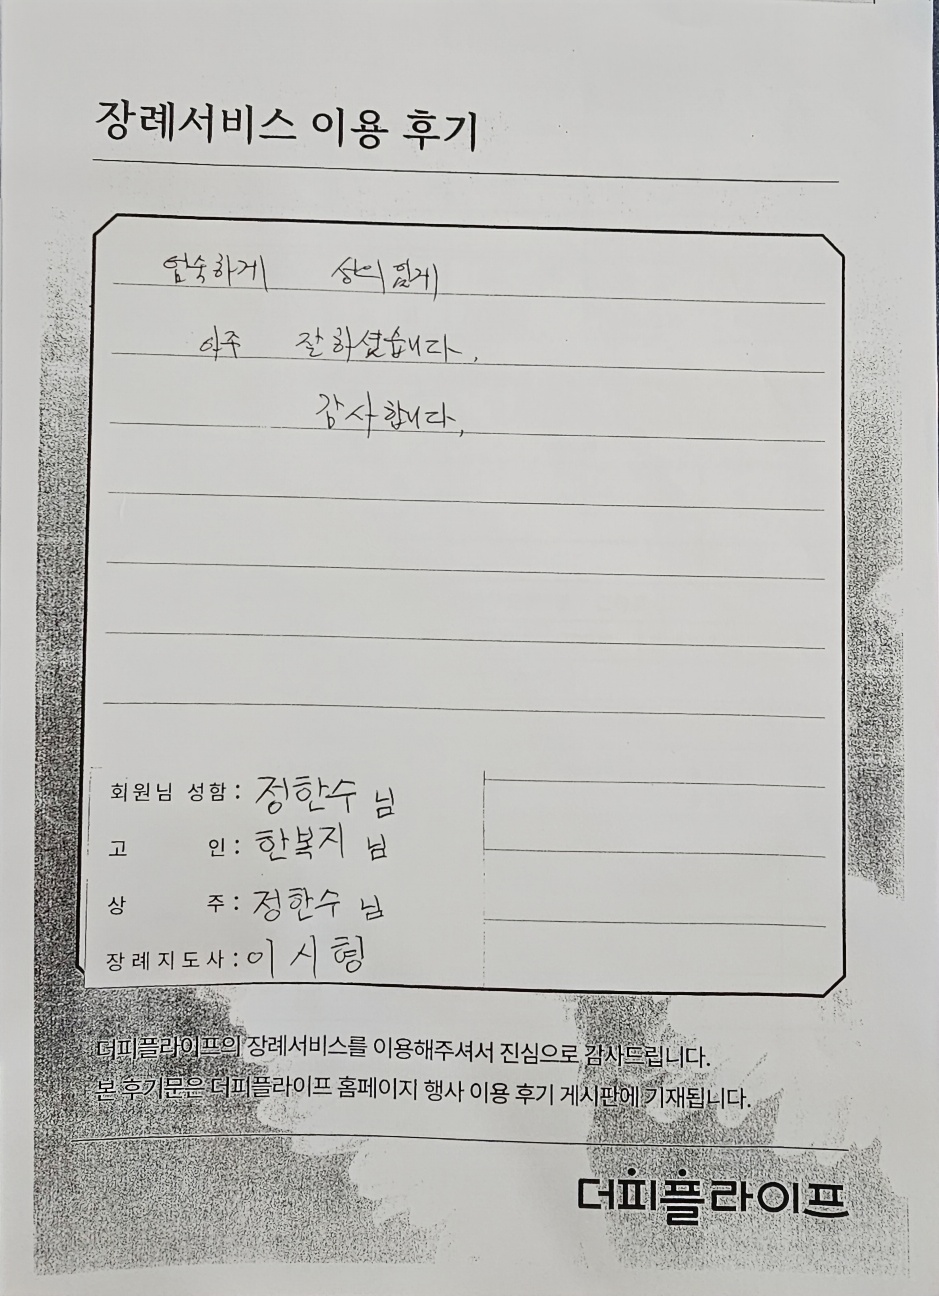 장례서비스 이용 후기
엄숙하게 상의없게
아주 잘하셨습니다.
감사합니다.
회원님 성함 : 정한수 님
고 인 : 한복지 님
상 주 : 정한수 님
장례지도사 : 이시형
더피플라이프의 장례서비스를 이용해주셔서 진심으로 감사드립니다.
본 후기문은 더피플라이프 홈페이지 행사 이용 후기 게시판에 기재됩니다.
더피플라이프